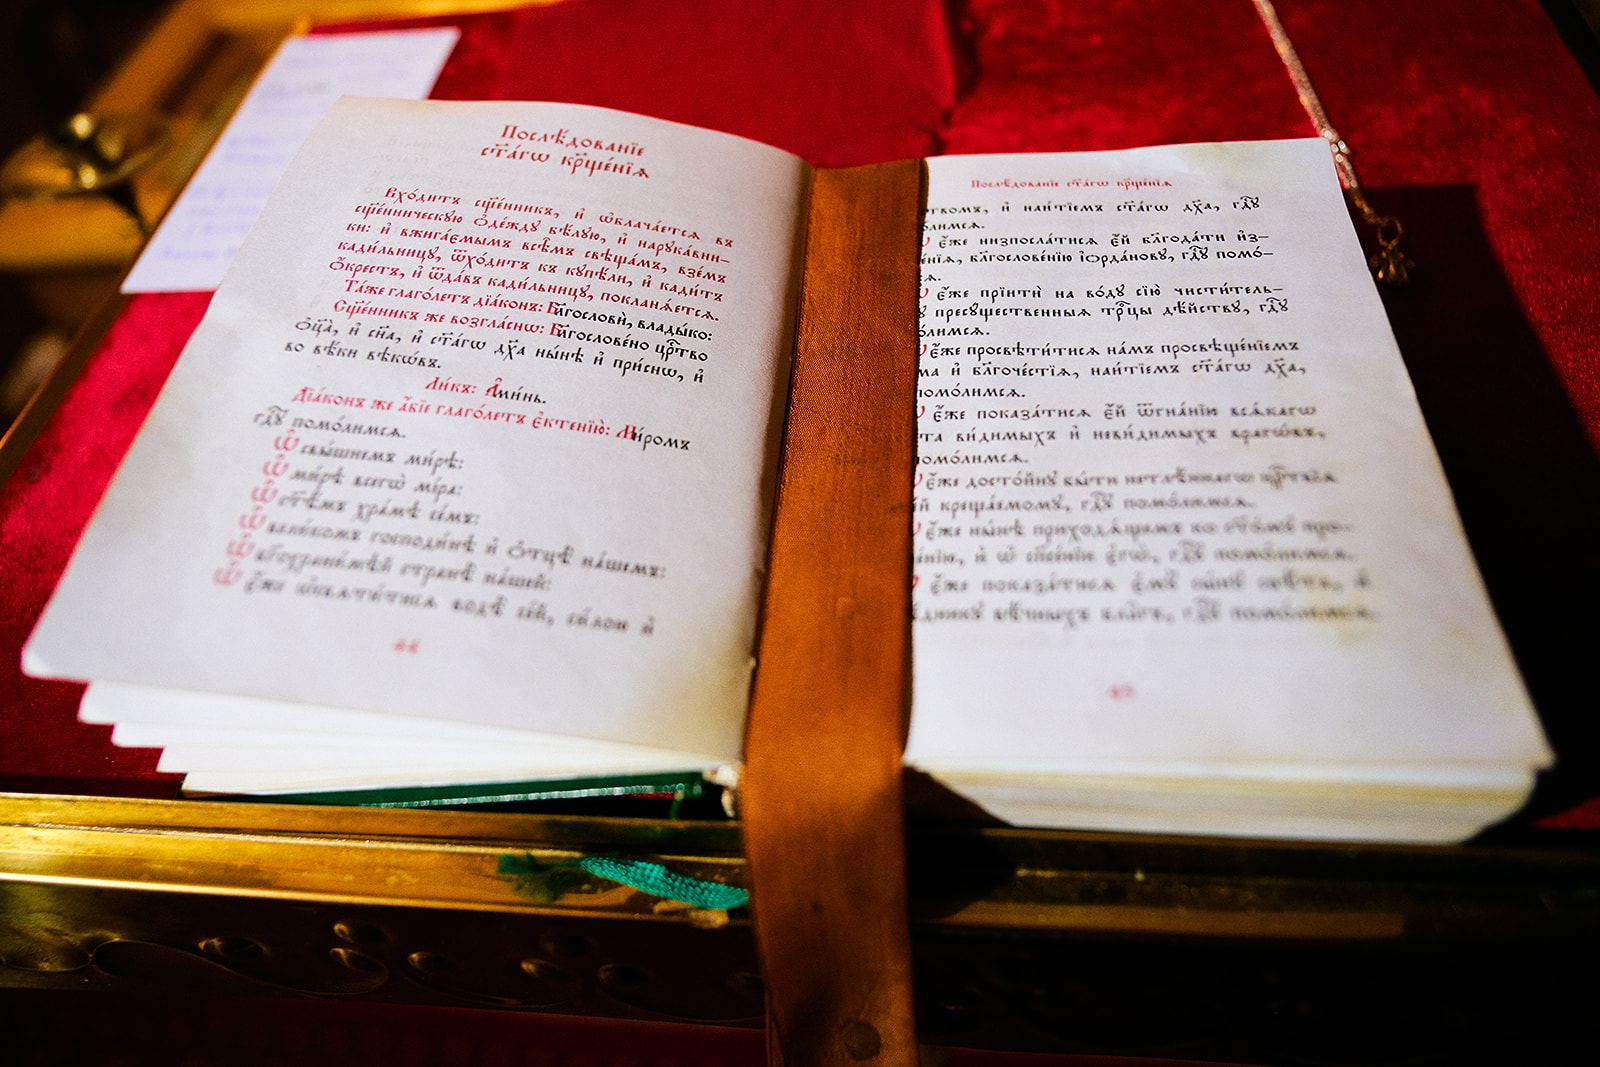 Послѣ́дованїе
ст҃а́гѡ крⷭ҇ще́нїѧ
Вхо́дитъ сщ҃е́нникъ, и҆ ѡ҆блача́етсѧ въ
сщ҃е́нническую ѻ҆де́жду бѣ́лую, и҆ нарука́вни-
ки: и҆ вжига́ємымъ всѣ̑мъ свѣща́мъ, взе́мъ
кади́льницу, ѿхо́дитъ къ купѣ́ли, и҆ кади́тъ
ѻ҆́крестъ, и҆ ѿда́въ кади́льницу, покланѧ́етсѧ.
Та́же глаго́летъ дїа́конъ: Бл҃гословѝ, влады́ко:
Сщ҃е́нникъ же возгла́снѡ: Бл҃гослове́но црⷭ҇тво
ѻ҆ц҃а̀, и҆ сн҃а, и҆ ст҃а́гѡ дх҃а ны́нѣ и҆ при́снѡ, и҆
во вѣ́ки вѣкѡ́въ.
Ли́къ: А҆ми́нь.
Дїа́конъ же а҆́бїе глаго́летъ є҆ктенїю̀: Ми́ромъ
гдⷭ҇у помо́лимсѧ.
Ѡ҆ свы́шнемъ ми́рѣ:
Ѡ҆ ми́рѣ всегѡ̀ мі́ра:
Ѡ҆ ст҃ѣ́мъ хра́мѣ се́мъ:
Ѡ҆ вели́комъ господи́нѣ и҆ ѻ҆тцѣ̀ на́шемъ:
Ѡ҆ бг҃охрани́мѣй странѣ̀ на́шей:
Ѡ҆ є҆́же ѡ҆свѧти́тисѧ водѣ̀ се́й, си́лою и҆
м҃д
Послѣ́дованїе ст҃а́гѡ крⷭ҇ще́нїѧ
ствомъ, и҆ наи́тїемъ ст҃а́гѡ дх҃а, гдⷭ҇у
о́лимсѧ.
є҆́же низпосла́тисѧ є҆́й блгⷣа́ти и҆з-
е́нїѧ, благослове́нїю і҆ѻрда́нову, гдⷭ҇у помо́-
ѧ.
є҆́же прїитѝ на во́ду сїю̀ чисти́тель-
у пресу́щественныѧ трⷪ҇цы дѣ́йству, гдⷭ҇у
о́лимсѧ.
є҆́же просвѣти́тисѧ на́мъ просвѣще́нїемъ
ма и҆ бл҃гоче́стїѧ, наи́тїемъ ст҃а́гѡ дх҃а,
помо́лимсѧ.
є҆́же показа́тисѧ є҆́й ѿгна́нїю всѧ́кагѡ
та ви́димыхъ и҆ неви́димыхъ врагѡ́въ,
помо́лимсѧ.
є҆́же досто́йну бы́ти нетлѣ́ннагѡ црⷭ҇твїѧ
е́й креща́емому, гдⷭ҇у помо́лимсѧ.
є҆́же ны́нѣ приходѧ́щемъ ко ст҃о́мѹ про-
е́нїю, и҆ ѡ҆ спⷭ҇е́нїи є҆гѡ̀, гдⷭ҇у помо́лимсѧ.
є҆́же показа́тисѧ є҆мѹ̀ сы́нѹ свѣ́та, и҆
е́днику вѣ́чныхъ бла̑гъ, гдⷭ҇у помо́лимсѧ.